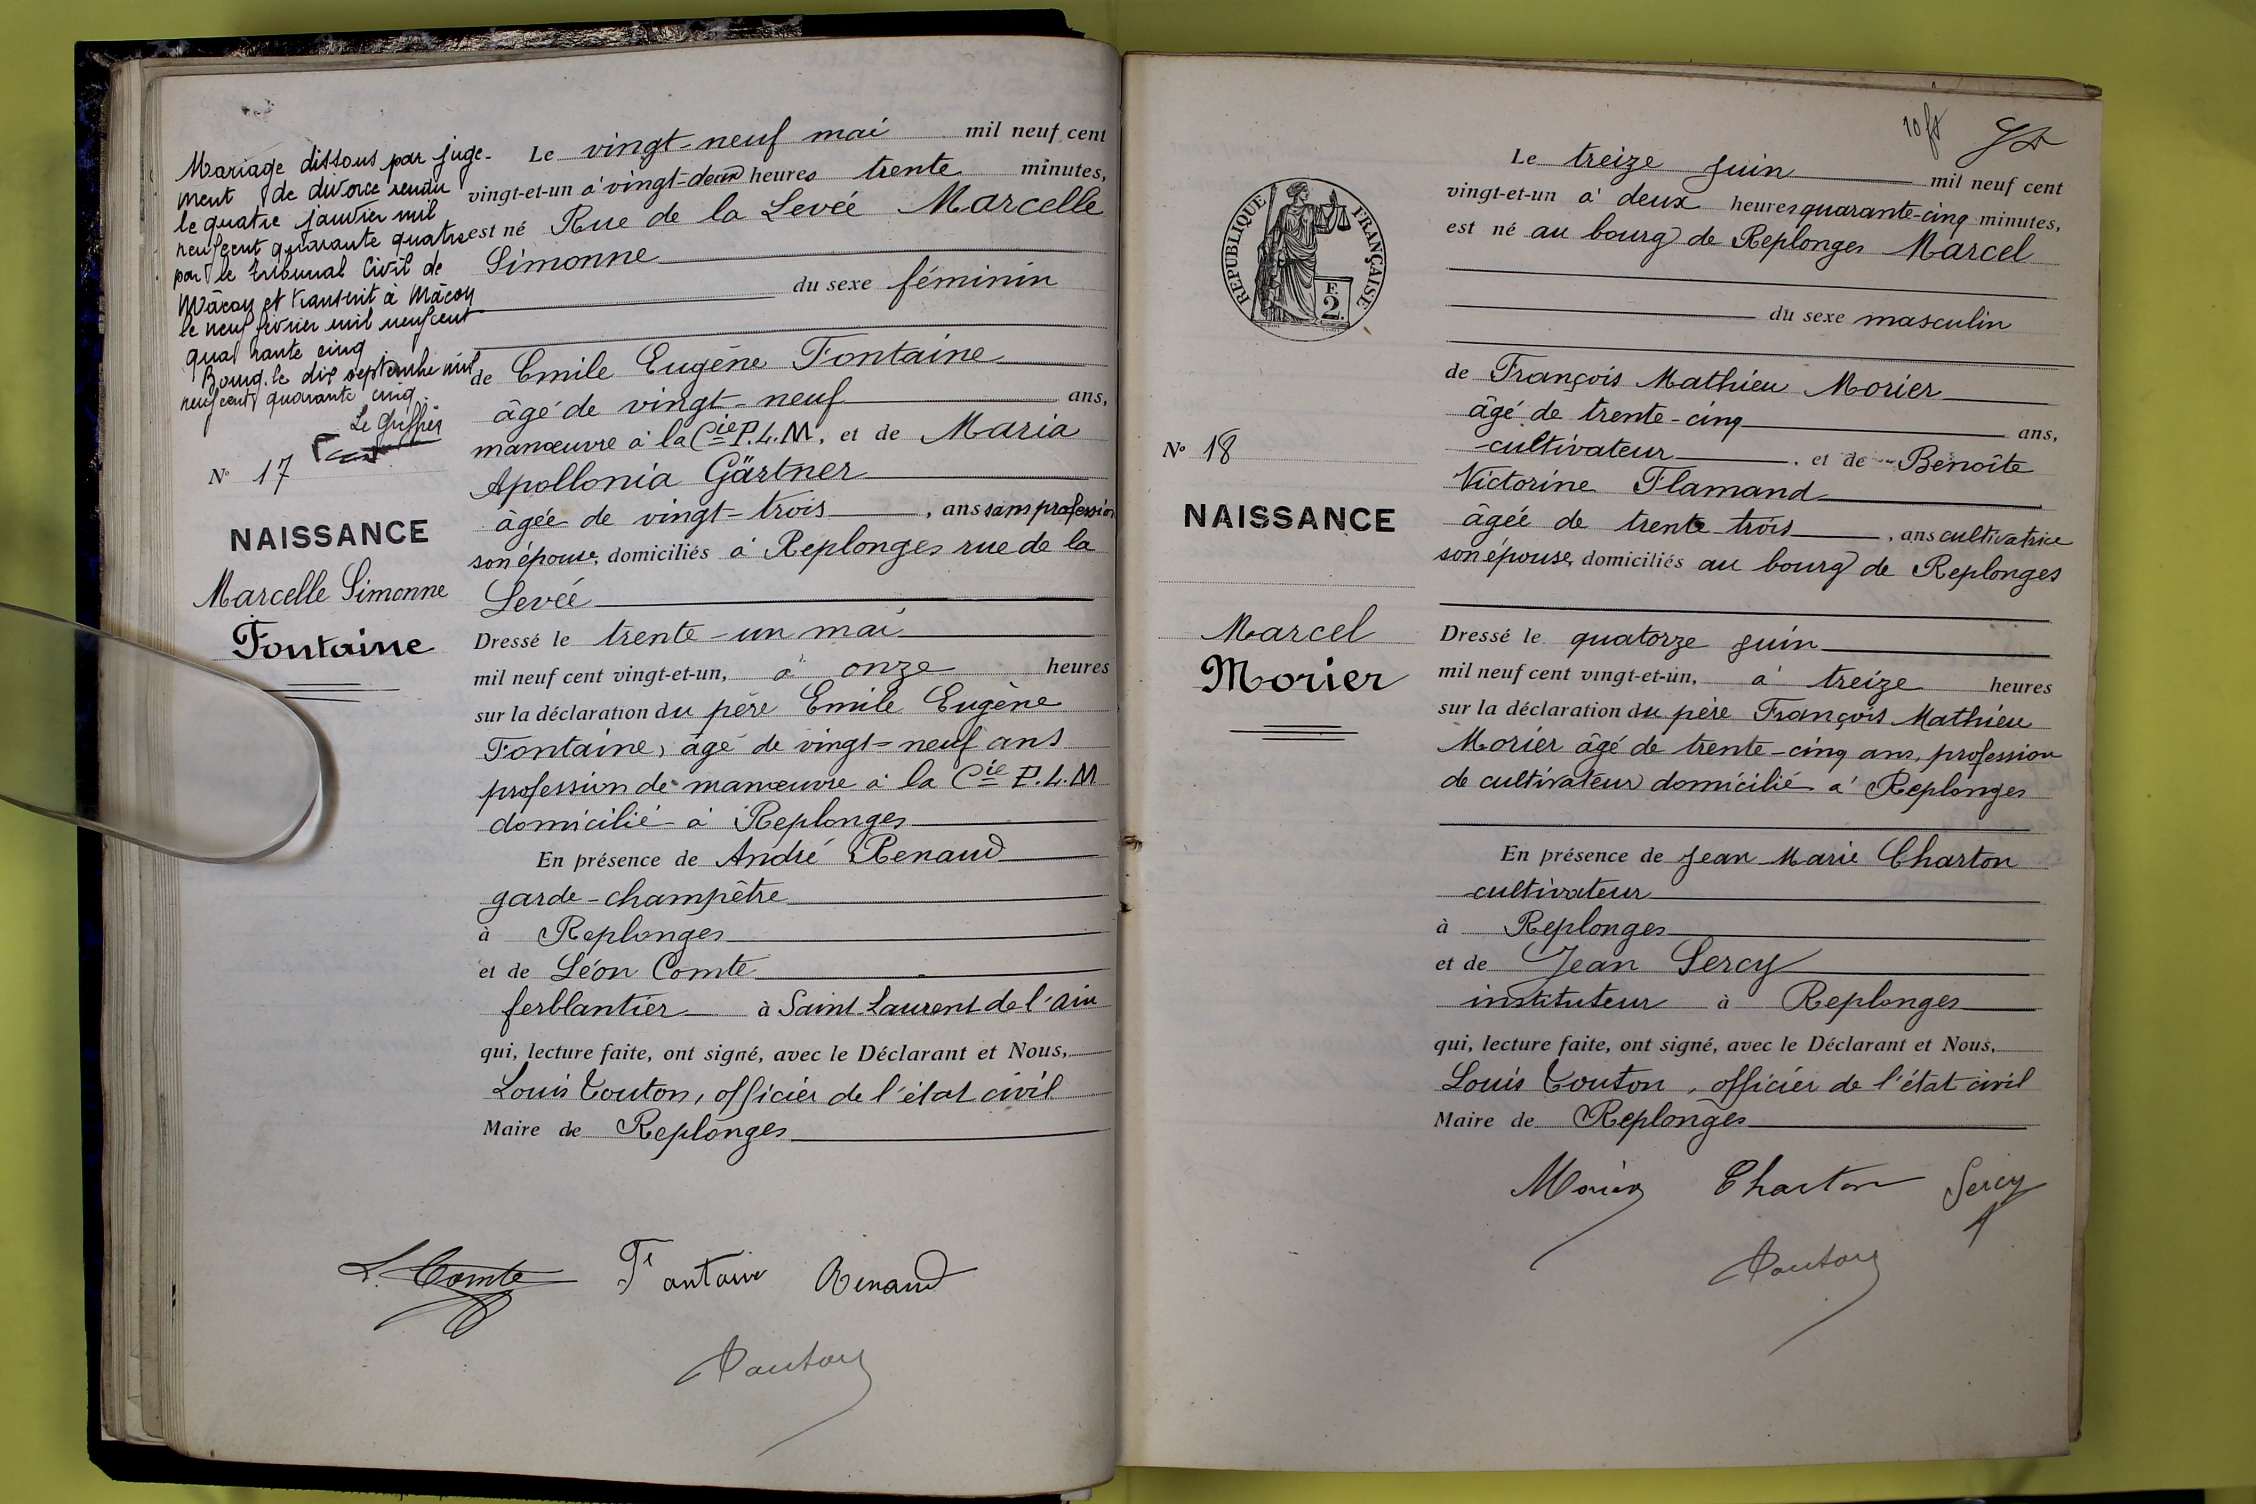 Mariage dissous par juge-
ment de divorce rendu
le quatre janvier mil
neuf cent quarante quatre
par le tribunal Civil de
Mâcon et transcrit à Mâcon
le neuf février mil neuf cent
quarante cinq
Bourg, le dix septembre mil
neuf cent quarante cinq.
Le Greffier
N° 17
NAISSANCE
Marcelle Simonne
Fontaine
Le vingt-neuf mai mil neuf cent
vingt-et-un à vingt-deux heures trente minutes,
est né Rue de la Levée Marcelle
Simonne
du sexe féminin
de Emile Eugène Fontaine
âgé de vingt-neuf ans,
manœuvre à la Cie P.L.M, et de Maria
Apollonia Gärtner
âgée de vingt-trois, ans sans profession
son épouse, domiciliés à Replonges rue de la
Levée
Dressé le trente-un mai
mil neuf cent vingt-et-un, à onze heures
sur la déclaration du père Emile Eugène
Fontaine, âgé de vingt-neuf ans
profession de manœuvre à la Cie P.L.M
domicilié à Replonges
En présence de André Renaud
garde-champêtre
à Replonges
et de Léon Comte
ferblantier à Saint-Laurent de l'Ain
qui, lecture faite, ont signé, avec le Déclarant et Nous,
Louis Touton, officier de l'état civil
Maire de Replonges
L. Comte Fontaine Renaud
Touton
10 ft
REPUBLIQUE FRANÇAISE
F.
2.
N° 18
NAISSANCE
Marcel
Morier
Le treize juin mil neuf cent
vingt-et-un à deux heures quarante-cinq minutes,
est né au bourg de Replonges Marcel
du sexe masculin
de François Mathieu Morier
âgé de trente-cinq ans,
cultivateur, et de Benoîte
Victorine Flamand
âgée de trente trois, ans cultivatrice
son épouse, domiciliés au bourg de Replonges
Dressé le quatorze juin
mil neuf cent vingt-et-un, à treize heures
sur la déclaration du père François Mathieu
Morier âgé de trente-cinq ans, profession
de cultivateur domicilié à Replonges
En présence de Jean Marie Charton
cultivateur
à Replonges
et de Jean Sercy
instituteur à Replonges
qui, lecture faite, ont signé, avec le Déclarant et Nous,
Louis Touton, officier de l'état civil
Maire de Replonges
Morier Charton Sercy
Touton